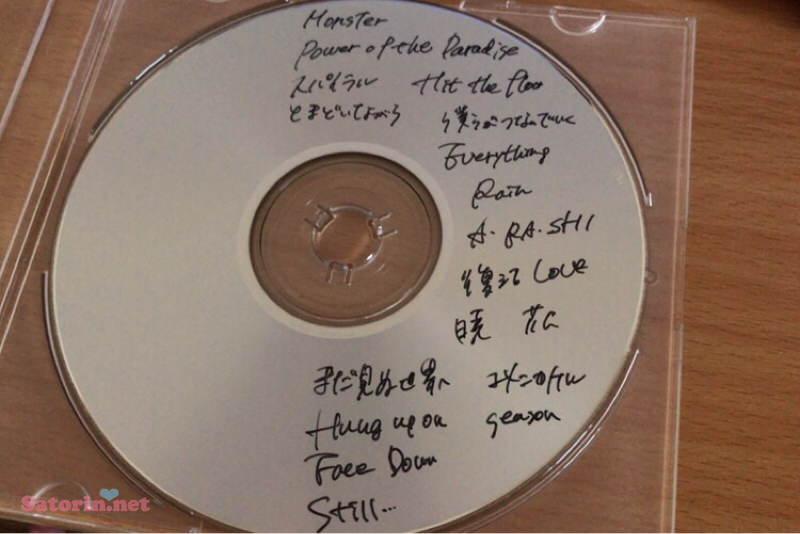 Monster
Power of the Paradise
スパイラル Hit the floor
とまどいながら 僕らがつないでいく
Everything
Rain
A・RA・SHI
復活 LOVE
暁
まだ見ぬ世界へ ユメニカケル
Hung up on season
Face Down
Still...
Satorin.net